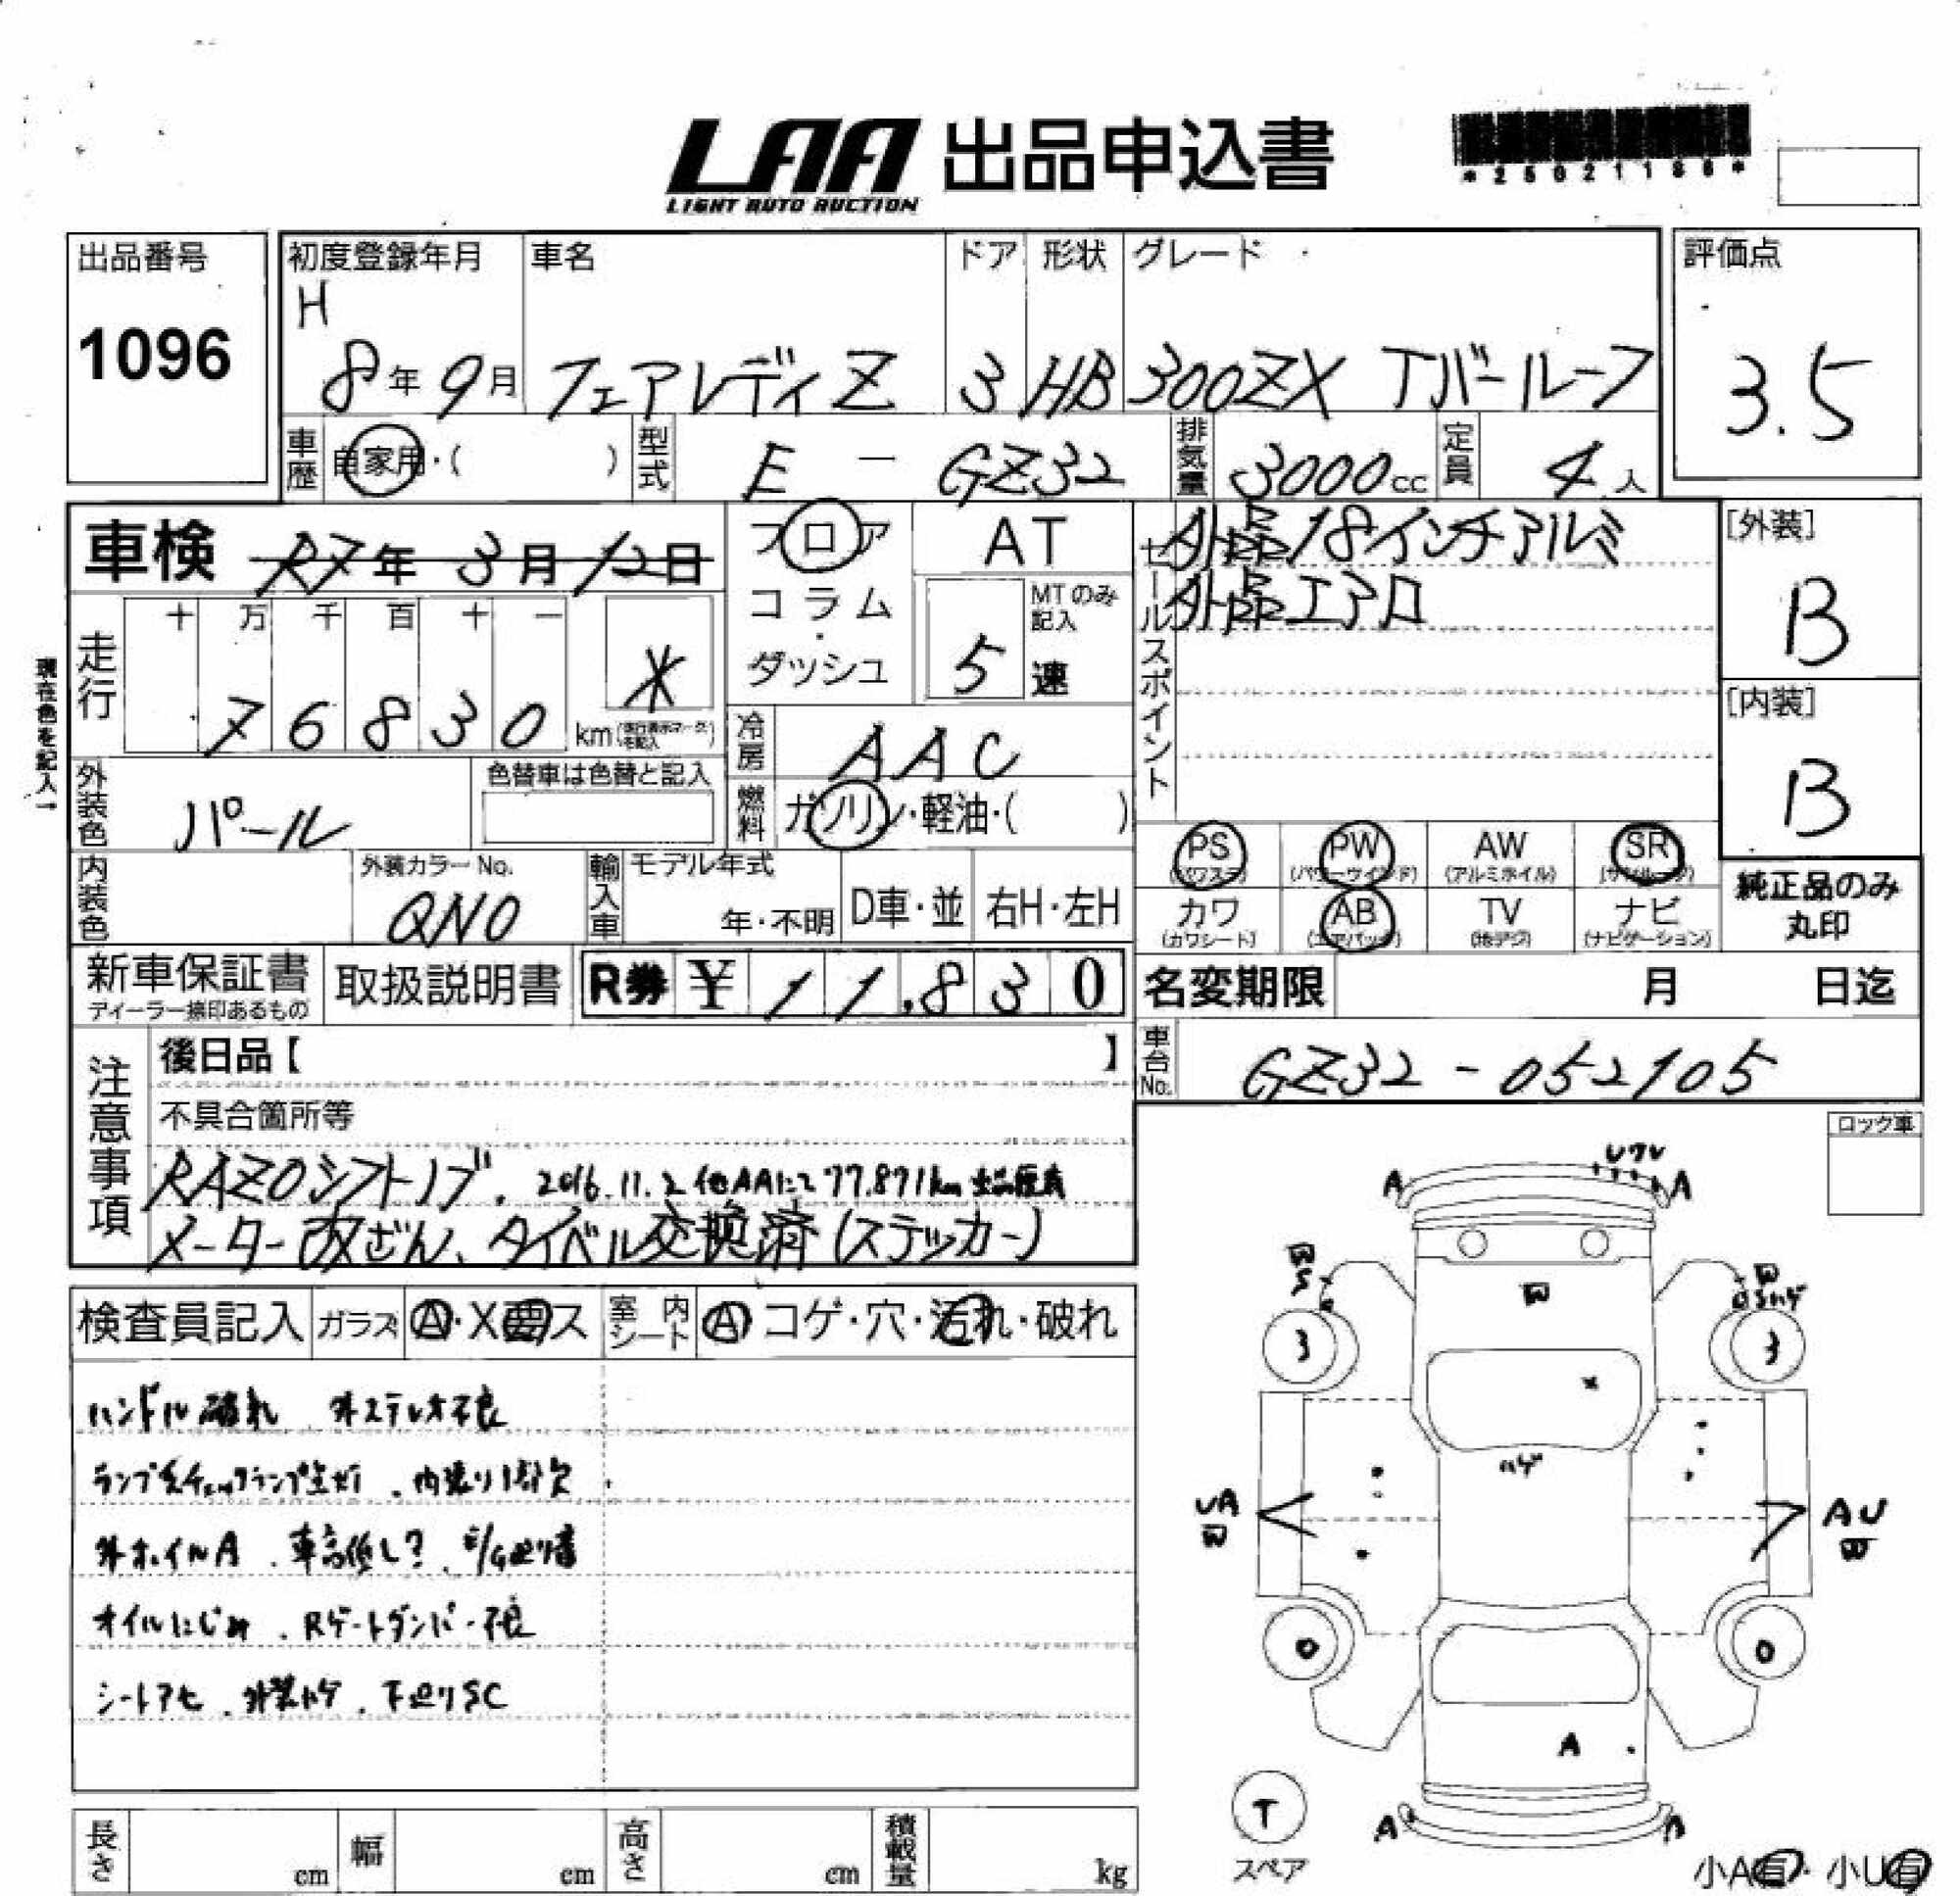 LAA 出品申込書
LIGHT AUTO AUCTION
出品番号
1096
初度登録年月
H
8年9月
車名
フェアレディZ
ドア
3
形状
HB
グレード
300ZX Tバールーフ
評価点
3.5
車歴 自家用・( )
型式 E - GZ32
排気量 3000cc
定員 4人
車検 R7年3月12日
現在色を記入→
走行
十 万 千 百 十 一
7 6 8 3 0 km
*
フロア
コラム
・
ダッシュ
AT
MTのみ記入
5 速
冷房 AAC
燃料 ガソリン・軽油・( )
セールスポイント
外品18インチアルミ
外品エアロ
[外装]
B
[内装]
B
外装色 パール
色替車は色替と記入
内装色
外装カラーNo.
QN0
輸入車
モデル年式
年・不明
D車・並
右H・左H
PS (パワステ)
PW (パワーウインド)
AW (アルミホイル)
SR (サンルーフ)
カワ (カワシート)
AB (エアバック)
TV (地デジ)
ナビ (ナビゲーション)
純正品のみ
丸印
新車保証書
ディーラー捺印あるもの
取扱説明書
R券 ¥ 11,830
名変期限 月 日迄
車台No. GZ32-052105
注意事項
後日品【 】
不具合箇所等
RAZOシフトノブ、2016.11.2 他AAにて77,871km出品歴有
メーター改ざん、タイベル交換済(ステッカー)
検査員記入
ガラス A・X要ス
室内シート A コゲ・穴・汚れ・破れ
ハンドル破れ 外ステレオ不良
内張り1部欠
外ホイルA、車高低し?、E/G廻り音
オイルにじみ、Rゲートダンパー不良
シートアセ、外装ハゲ、下廻りSC
ロック車
A
A
W
S
W
W
3
3
×
ハゲ
UA
W
AU
W
0
0
A
T
スペア
A
A
小A有・小U有
長さ cm
幅 cm
高さ cm
積載量 kg